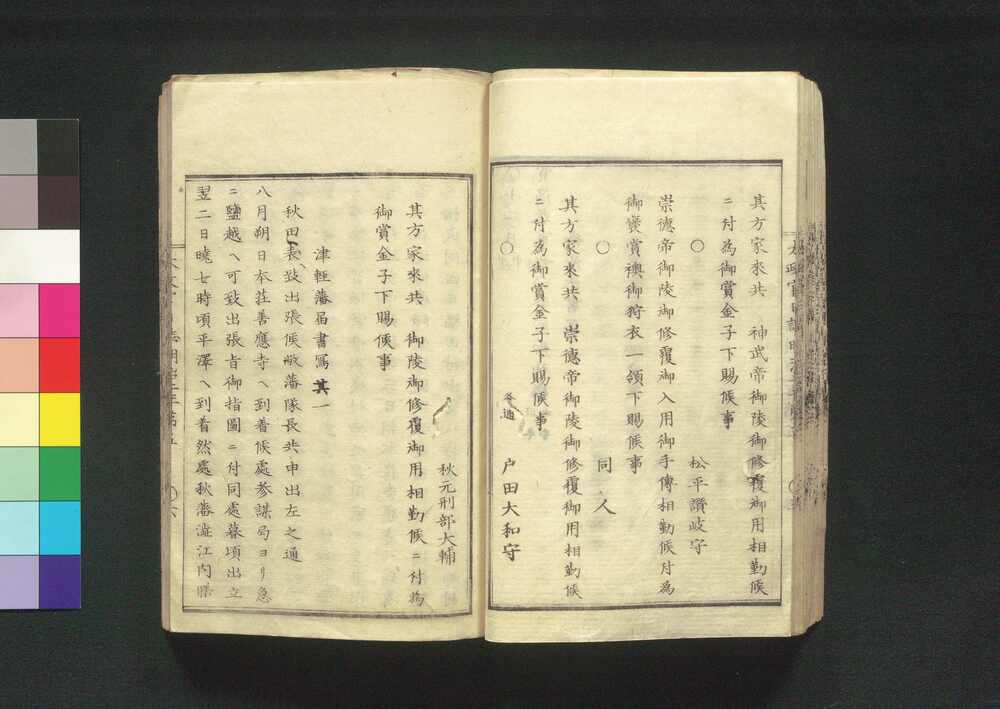 其方家來共　神武帝御陵御修覆御用相勤候
ニ付為御賞金子下賜候事
○
松平讃岐守
崇德帝御陵御修覆御入用御手傳相勤候付為
御襃賞襖御狩衣一領下賜候事
○
同人
其方家來共　崇德帝御陵御修覆御用相勤候
ニ付為御賞金子下賜候事
○
各通
戸田大和守
秋元刑部大輔
其方家來共　御陵御修覆御用相勤候ニ付為
御賞金子下賜候事
津輕藩届書寫其一
秋田表致出張候敝藩隊長共申出左之通
八月朔日本荘善應寺ヘ到着候處參謀局ヨリ急
ニ鹽越ヘ可致出張旨御指圖ニ付同處暮項出立
翌二日曉七時頃平澤ヘ到着然處秋藩澁江内膳